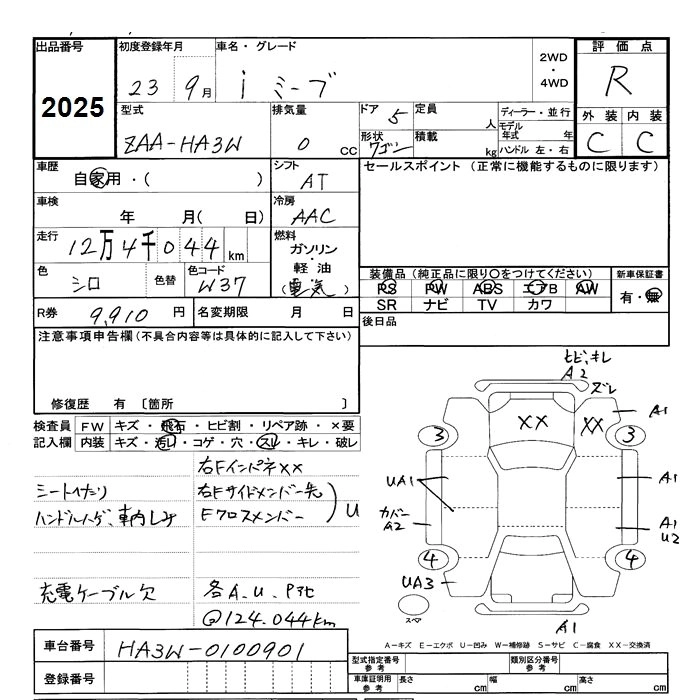 出品番号 初度登録年月 車名・グレード 2WD・4WD 評価点
2025 23 9月 i ミーブ R
型式 排気量 ドア 5 定員 人 ディーラー・並行 外装 内装
ZAA-HA3W 0 CC 形状 ワゴン 積載 kg モデル年式 年 ハンドル 左・右 C C
車歴 シフト セールスポイント (正常に機能するものに限ります)
自家用・( ) AT
車検 冷房
年 月( 日) AAC
走行 燃料
12万4千044km ガソリン・軽油
色 シロ 色替 色コード W37 (電気)
装備品(純正品に限り○をつけてください) 新車保証書
PS PW ABS エアB AW 有・無
SR ナビ TV カワ
R券 9,910 円 名変期限 月 日 後日品
注意事項申告欄(不具合内容等は具体的に記入して下さい)
修復歴 有 〔箇所 〕
検査員 FW キズ・飛石・ヒビ割・リペア跡・×要
記入欄 内装 キズ・汚レ・コゲ・穴・スレ・キレ・破レ
右Fインパネ××
シートヘタリ 右Fサイドメンバー先
ハンドルハゲ、車内しみ Fクロスメンバー U
充電ケーブル欠 各A.U.P他
@124.044km
ヒビ、キレ
A2
ズレ
×× ×× A1
3 3
UA1 A1
カバー A2 A1
U2
4 4
UA3
スペア
A1
A-キズ E-エクボ U-凹み W-補修跡 S-サビ C-腐食 XX-交換済
車台番号 HA3W-0100901
型式指定番号 参考 類別区分番号 参考
登録番号 車庫証明用 参考 長さ cm 幅 cm 高さ cm